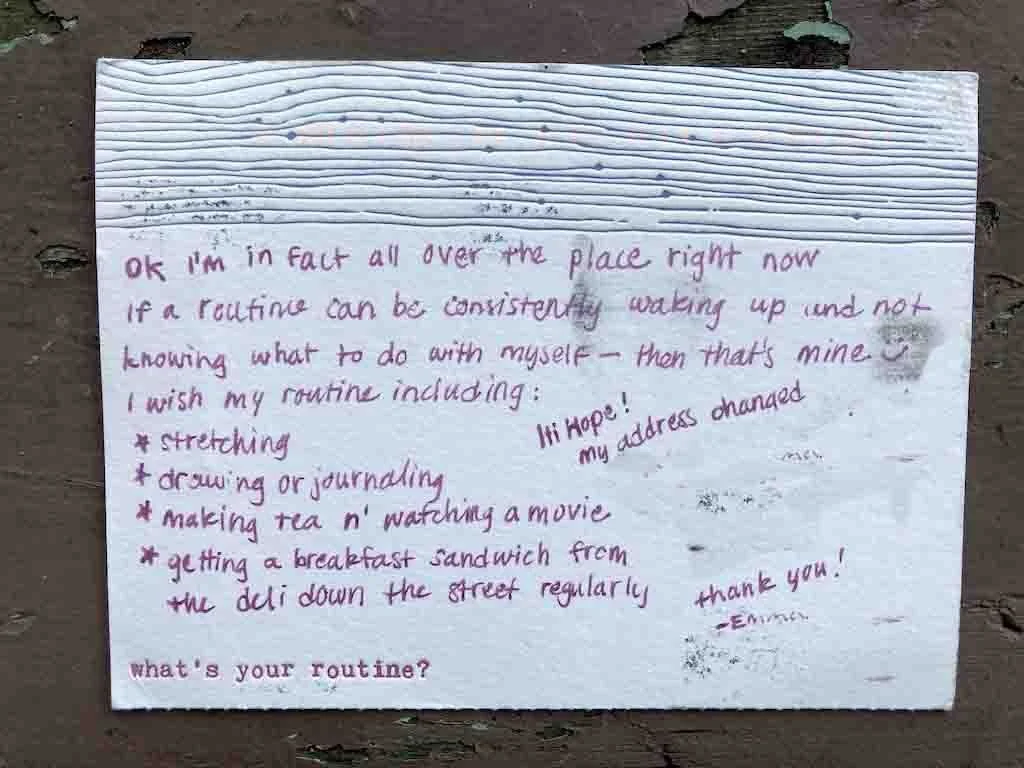 OK I'm in fact all over the place right now
if a routine can be consistently waking up and not
knowing what to do with myself — then that's mine
I wish my routine including:
* stretching
* drawing or journaling
* making tea n' watching a movie
* getting a breakfast sandwich from
the deli down the street regularly
Hi Hope!
my address changed
thank you!
-Emma
what's your routine?